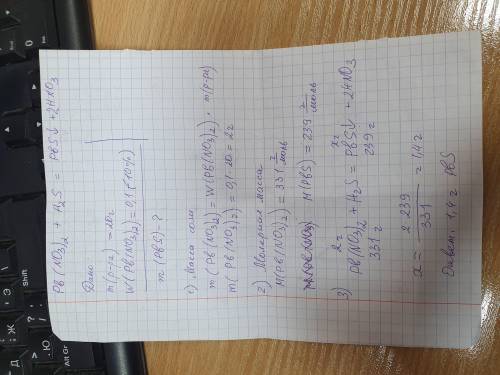 Pb(NO₃)₂ + H₂S = PbS↓ + 2HNO₃
Дано
m(р-ра) = 20г
W(Pb(NO₃)₂) = 0,1 (10%)
m(PbS) - ?
1) Масса соли
m(Pb(NO₃)₂) = W(Pb(NO₃)₂) · m(р-ра)
m(Pb(NO₃)₂) = 0,1 · 20 = 2г
2) Молярная масса
M(Pb(NO₃)₂) = 331 г/моль
M(PbS) = 239 г/моль
3) 2г xг
Pb(NO₃)₂ + H₂S = PbS↓ + 2HNO₃
331г 239г
x = 2 · 239 / 331 = 1,4г
Ответ: 1,4г PbS
Alt Gr